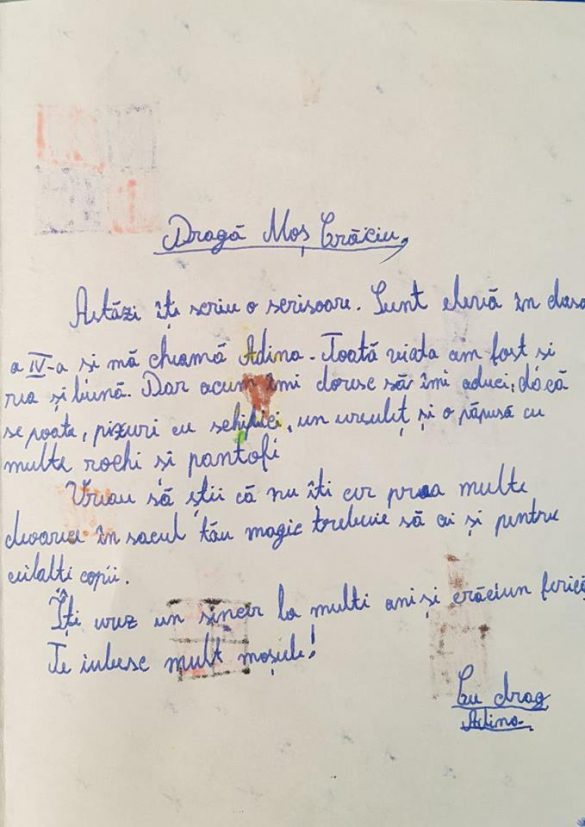 Dragă Moș Crăciu,
Astăzi îți scriu o scrisoare. Sunt elevă în clasa
a IV-a si mă chiamă Adina. Toată viata am fost și
rea și bună. Dar acum îmi doresc să îmi aduci, dacă
se poate, pixuri cu sclipici, un ursuleț și o păpusă cu
multe rochi și pantofi
Vreau să știi că nu îti cer prea multe
deoarece în sacul tău magic trebuie să ai și pentru
ceilalti copii.
Îți urez un sincer la multi ani și crăciun fericit
Te iubesc mult moșule!
Cu drag
Adina.